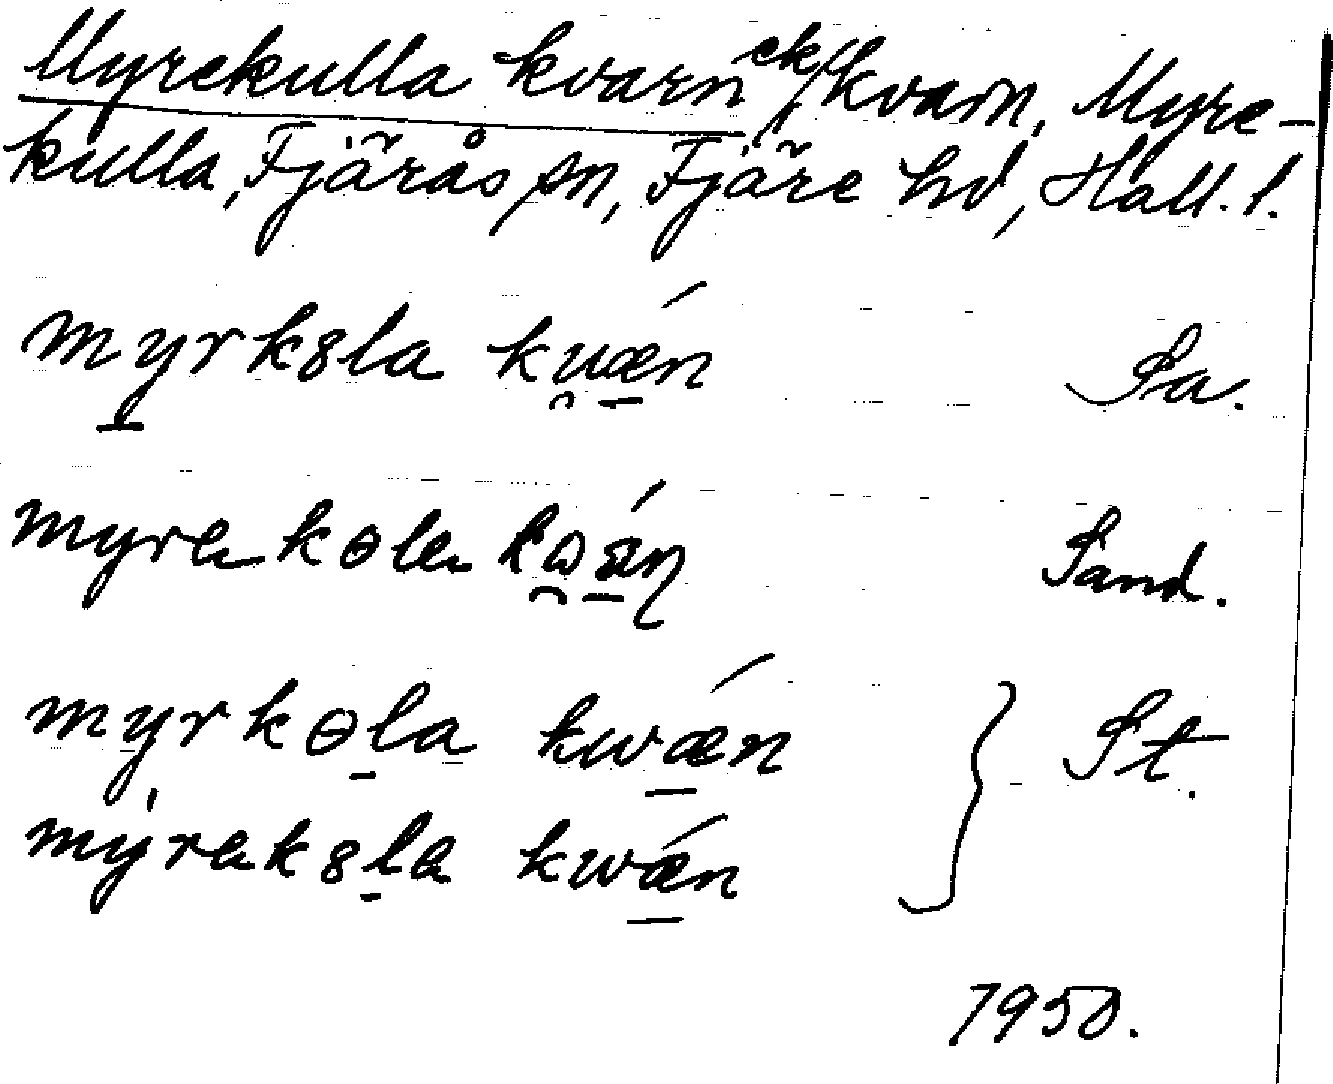 Myrekulla kvarn ek/kvarn, Myre-
kulla, Fjärås sn, Fjäre hd, Hall. l.
myrk8la kwǽn Sa.
myrekɵle Sand.
myrkɵla kwǽn St.
mýrek8la kwǽn
1950.